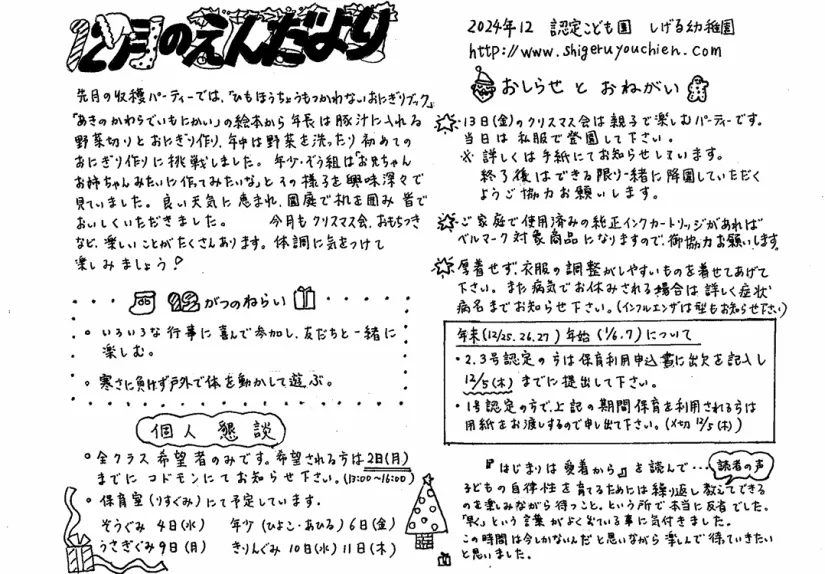 12月のえんだより
先月の収穫パーティーでは、「ひもほうちょうもつかわないおにぎりブック」
「あきのかわらでいもにかい」の絵本から年長は豚汁に入れる
野菜切りとおにぎり作り、年中は野菜を洗ったり初めての
おにぎり作りに挑戦しました。年少・ぞう組は「お兄ちゃん
お姉ちゃんみたいに作ってみたいな」とその様子を興味深々で
見ていました。良い天気に恵まれ、園庭で机を囲み皆で
おいしくいただきました。 今月もクリスマス会、おもちつき
など、楽しいことがたくさんあります。体調に気をつけて
楽しみましょう!
12がつのねらい
○ いろいろな行事に喜んで参加し、友だちと一緒に
楽しむ。
○ 寒さに負けず戸外で体を動かして遊ぶ。
個人懇談
○ 全クラス希望者のみです。希望される方は2日(月)
までにコドモンにてお知らせ下さい。(13:00~16:00)
○ 保育室(りすぐみ)にて予定しています。
ぞうぐみ 4日(水) 年少(ひよこ・あひる)6日(金)
うさぎぐみ9日(月) きりんぐみ 10日(水)11日(木)
2024年12 認定こども園 しげる幼稚園
http://www.shigeruyouchien.com
おしらせとおねがい
・13日(金)のクリスマス会は親子で楽しむパーティーです。
当日は私服で登園して下さい。
※ 詳しくは手紙にてお知らせしています。
終了後はできる限り一緒に降園していただく
ようご協力お願いします。
・ご家庭で使用済みの純正インクカートリッジがあれば
ベルマーク対象商品になりますので、御協力お願いします。
・厚着せず、衣服の調整がしやすいものを着せてあげて
下さい。また病気でお休みされる場合は詳しく症状
病名までお知らせ下さい。(インフルエンザは型もお知らせ下さい)
年末(12/25.26.27)年始(1/6.7)について
・2.3号認定の方は保育利用申込書に出欠を記入し
12/5(木)までに提出して下さい。
・1号認定の方で、上記の期間保育を利用される方は
用紙をお渡しするので申し出て下さい。(〆切12/5(木))
『はじまりは愛着から』を読んで… 読者の声
子どもの自律性を育てるためには繰り返し教えてできる
のを楽しみながら待つこと。という所で本当に反省でした。
「早く」という言葉がよく出ている事に気付きました。
この時間は今しかないんだと思いながら楽しんで待ていきたい
と思いました。